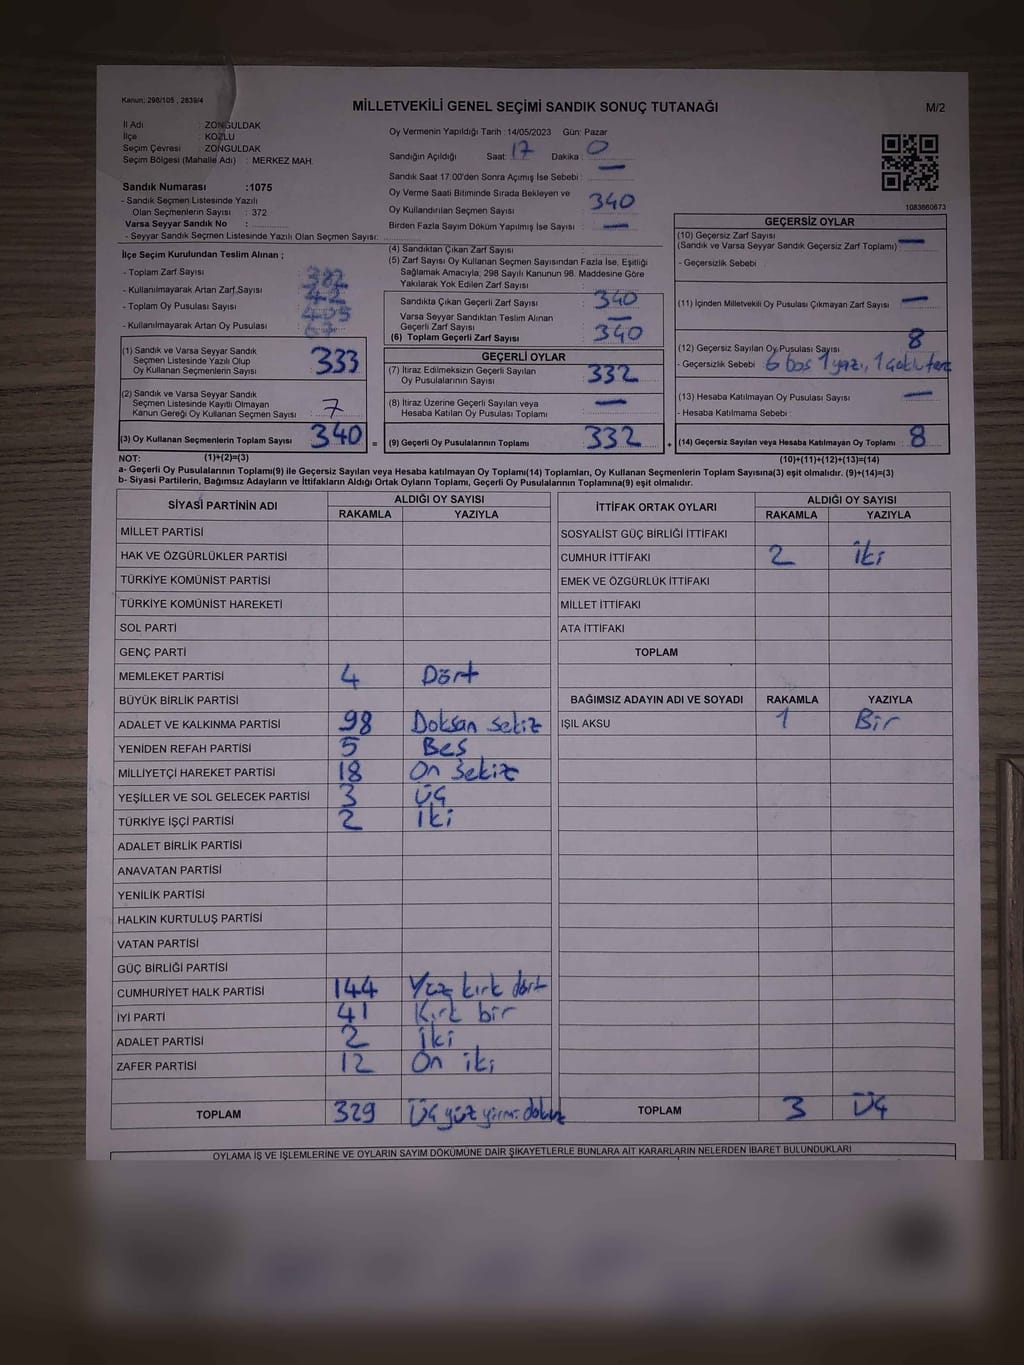 Kanun; 298/105 , 2839/4
MİLLETVEKİLİ GENEL SEÇİMİ SANDIK SONUÇ TUTANAĞI
M/2
İl Adı : ZONGULDAK
İlçe : KOZLU
Seçim Çevresi : ZONGULDAK
Seçim Bölgesi (Mahalle Adı) : MERKEZ MAH.
Sandık Numarası :1075
- Sandık Seçmen Listesinde Yazılı
Olan Seçmenlerin Sayısı : 372
Varsa Seyyar Sandık No :
- Seyyar Sandık Seçmen Listesinde Yazılı Olan Seçmen Sayısı:
Oy Vermenin Yapıldığı Tarih : 14/05/2023 Gün: Pazar
Sandığın Açıldığı Saat: 17 Dakika : 0
Sandık Saat 17:00'den Sonra Açımış İse Sebebi : —
Oy Verme Saati Bitiminde Sırada Bekleyen ve
Oy Kullandırılan Seçmen Sayısı : 340
Birden Fazla Sayım Döküm Yapılmış İse Sayısı : —
1083660673
İlçe Seçim Kurulundan Teslim Alınan ;
- Toplam Zarf Sayısı : 382
- Kullanılmayarak Artan Zarf Sayısı : 42
- Toplam Oy Pusulası Sayısı : 405
- Kullanılmayarak Artan Oy Pusulası :
(1) Sandık ve Varsa Seyyar Sandık
Seçmen Listesinde Yazılı Olup
Oy Kullanan Seçmenlerin Sayısı : 333
(2) Sandık ve Varsa Seyyar Sandık
Seçmen Listesinde Kayıtlı Olmayan
Kanun Gereği Oy Kullanan Seçmen Sayısı : 7
(3) Oy Kullanan Seçmenlerin Toplam Sayısı : 340 =
(4) Sandıktan Çıkan Zarf Sayısı
(5) Zarf Sayısı Oy Kullanan Seçmen Sayısından Fazla İse, Eşitliği
Sağlamak Amacıyla; 298 Sayılı Kanunun 98. Maddesine Göre
Yakılarak Yok Edilen Zarf Sayısı :
Sandıkta Çıkan Geçerli Zarf Sayısı : 340
Varsa Seyyar Sandıktan Teslim Alınan
Geçerli Zarf Sayısı : —
(6) Toplam Geçerli Zarf Sayısı : 340
GEÇERLİ OYLAR
(7) İtiraz Edilmeksizin Geçerli Sayılan
Oy Pusulalarının Sayısı : 332
(8) İtiraz Üzerine Geçerli Sayılan veya
Hesaba Katılan Oy Pusulası Toplamı : —
(9) Geçerli Oy Pusulalarının Toplamı : 332 +
GEÇERSİZ OYLAR
(10) Geçersiz Zarf Sayısı
(Sandık ve Varsa Seyyar Sandık Geçersiz Zarf Toplamı) : —
- Geçersizlik Sebebi :
(11) İçinden Milletvekili Oy Pusulası Çıkmayan Zarf Sayısı : —
(12) Geçersiz Sayılan Oy Pusulası Sayısı : 8
- Geçersizlik Sebebi : 6 boş 1 yazı,
(13) Hesaba Katılmayan Oy Pusulası Sayısı : —
- Hesaba Katılmama Sebebi :
(14) Geçersiz Sayılan veya Hesaba Katılmayan Oy Toplamı : 8
NOT: (1)+(2)=(3)
(10)+(11)+(12)+(13)=(14)
a- Geçerli Oy Pusulalarının Toplamı(9) ile Geçersiz Sayılan veya Hesaba katılmayan Oy Toplamı(14) Toplamları, Oy Kullanan Seçmenlerin Toplam Sayısına(3) eşit olmalıdır. (9)+(14)=(3)
b- Siyasi Partilerin, Bağımsız Adayların ve İttifakların Aldığı Ortak Oyların Toplamı, Geçerli Oy Pusulalarının Toplamına(9) eşit olmalıdır.
SİYASİ PARTİNİN ADI
ALDIĞI OY SAYISI
RAKAMLA YAZIYLA
MİLLET PARTİSİ
HAK VE ÖZGÜRLÜKLER PARTİSİ
TÜRKİYE KOMÜNİST PARTİSİ
TÜRKİYE KOMÜNİST HAREKETİ
SOL PARTİ
GENÇ PARTİ
MEMLEKET PARTİSİ 4 Dört
BÜYÜK BİRLİK PARTİSİ
ADALET VE KALKINMA PARTİSİ 98 Doksan sekiz
YENİDEN REFAH PARTİSİ 5 Beş
MİLLİYETÇİ HAREKET PARTİSİ 18 On Sekiz
YEŞİLLER VE SOL GELECEK PARTİSİ 3 Üç
TÜRKİYE İŞÇİ PARTİSİ 2 İki
ADALET BİRLİK PARTİSİ
ANAVATAN PARTİSİ
YENİLİK PARTİSİ
HALKIN KURTULUŞ PARTİSİ
VATAN PARTİSİ
GÜÇ BİRLİĞİ PARTİSİ
CUMHURİYET HALK PARTİSİ 144 Yüz kırk dört
İYİ PARTİ 41 Kırk bir
ADALET PARTİSİ 2 İki
ZAFER PARTİSİ 12 On iki
TOPLAM 329 Üç yüz yirmi dokuz
İTTİFAK ORTAK OYLARI
ALDIĞI OY SAYISI
RAKAMLA YAZIYLA
SOSYALİST GÜÇ BİRLİĞİ İTTİFAKI
CUMHUR İTTİFAKI 2 İki
EMEK VE ÖZGÜRLÜK İTTİFAKI
MİLLET İTTİFAKI
ATA İTTİFAKI
TOPLAM
BAĞIMSIZ ADAYIN ADI VE SOYADI RAKAMLA YAZIYLA
IŞIL AKSU 1 Bir
TOPLAM 3 Üç
OYLAMA İŞ VE İŞLEMLERİNE VE OYLARIN SAYIM DÖKÜMÜNE DAİR ŞİKAYETLERLE BUNLARA AİT KARARLARIN NELERDEN İBARET BULUNDUKLARI